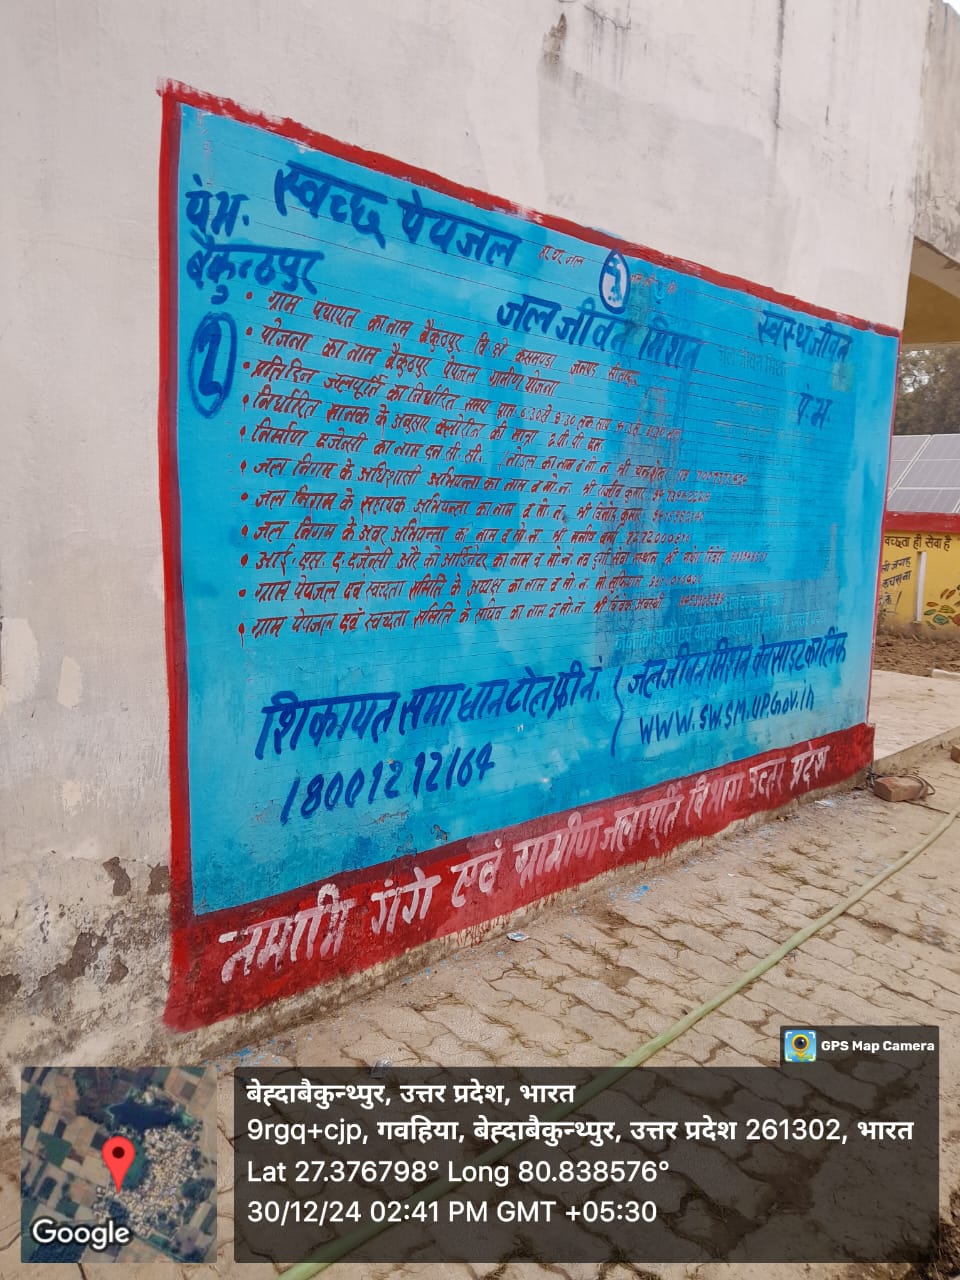 स्वच्छ पेयजल
पं.भ.
बैकुन्ठपुर
हर घर जल
जल जीवन मिशन
स्वस्थ जीवन
पं.भ.
• ग्राम पंचायत का नाम बैकुंठपुर वि० क्षे० कसमण्डा जनपद सीतापुर
• योजना का नाम बैकुंठपुर पेयजल ग्रामीण योजना
• प्रतिदिन जलपूर्ति का निर्धारित समय प्रातः 6:30 से 8:30 तक
• निर्धारित मानक के अनुसार क्लोरीन की मात्रा 2 पी पी एम
• निर्माण एजेन्सी का नाम एन सी सी. नोडल का नाम व मो.न. श्री
• जल निगम के अधिशासी अभियन्ता का नाम व मो.न. श्री राजीव कुमार
• जल निगम के सहायक अभियन्ता का नाम व मो.न. श्री विनोद कुमार
• जल निगम के अवर अभियन्ता का नाम व मो.न. श्री मनीष वर्मा
• आई. एस. ए. एजेन्सी और को आर्डिनेटर का नाम व मो.नं. नव दुर्गा सेवा संस्थान श्री
• ग्राम पेयजल एवं स्वच्छता समिति के अध्यक्ष का नाम व मो.न.
• ग्राम पेयजल एवं स्वच्छता समिति के सचिव का नाम व मो.न. श्री विवेक अवस्थी
शिकायत समाधान टोल फ्री नं.
18001212164
जल जीवन मिशन वेबसाइट का लिंक
WWW.SWSM.UP.Gov.in
नमामि गंगे एवं ग्रामीण जलापूर्ति विभाग उत्तर प्रदेश
स्वच्छता ही सेवा है
GPS Map Camera
बेह्दाबैकुन्थ्पुर, उत्तर प्रदेश, भारत
9rgq+cjp, गवहिया, बेह्दाबैकुन्थ्पुर, उत्तर प्रदेश 261302, भारत
Lat 27.376798° Long 80.838576°
30/12/24 02:41 PM GMT +05:30
Google